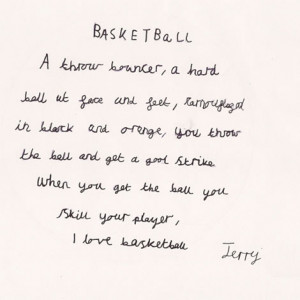 BASKETBALL
A throw bouncer, a hard
ball at face and feet, camouflaged
in black and orange, you throw
the ball and get a good strike
When you get the ball you
skill your player,
I love basketball
Jerry